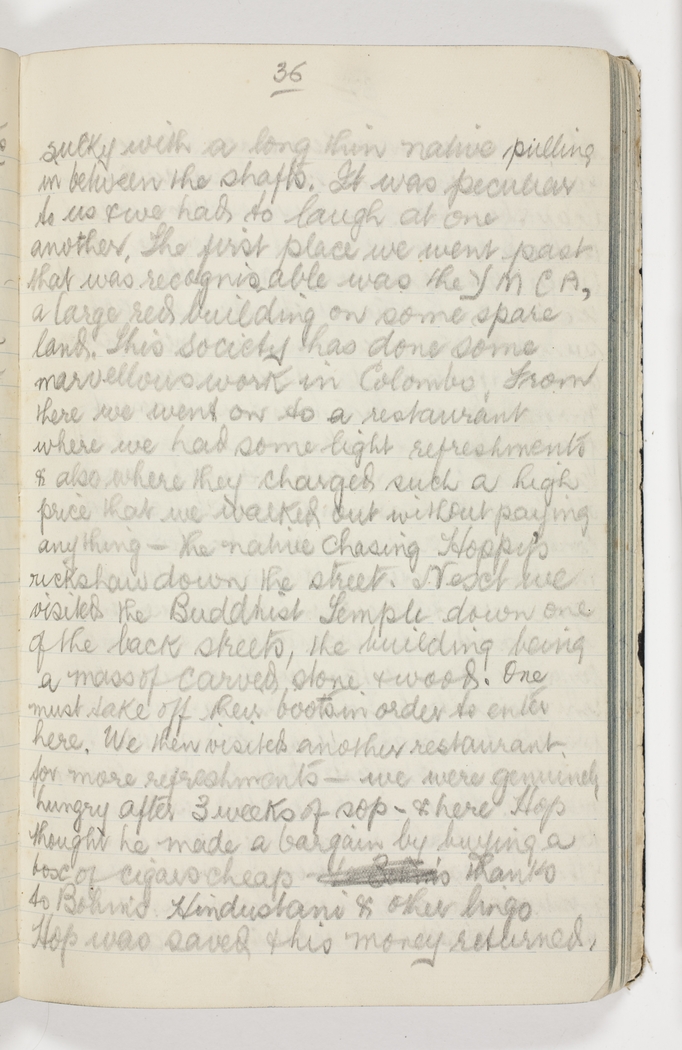 36
sulky with a long thin native pulling
in between the shafts. It was peculiar
to us & we had to laugh at one
another. The first place we went past
that was recognisable was the Y M C A,
a large red building on some spare
land. This society has done some
marvellous work in Colombo. From
there we went on to a restaurant
where we had some light refreshments
& also where they charged such a high
price that we walked out without paying
anything — the native chasing Hoppy's
rickshaw down the street. Next we
visited the Buddhist Temple down one
of the back streets, the building being
a mass of carved stone & wood. One
must take off their boots in order to enter
here. We then visited another restaurant
for more refreshments — we were genuinely
hungry after 3 weeks of sop - & here Hop
thought he made a bargain by buying a
box of cigars cheap thanks
to Böhm's Hindustani & other lingo
Hop was saved & his money returned.